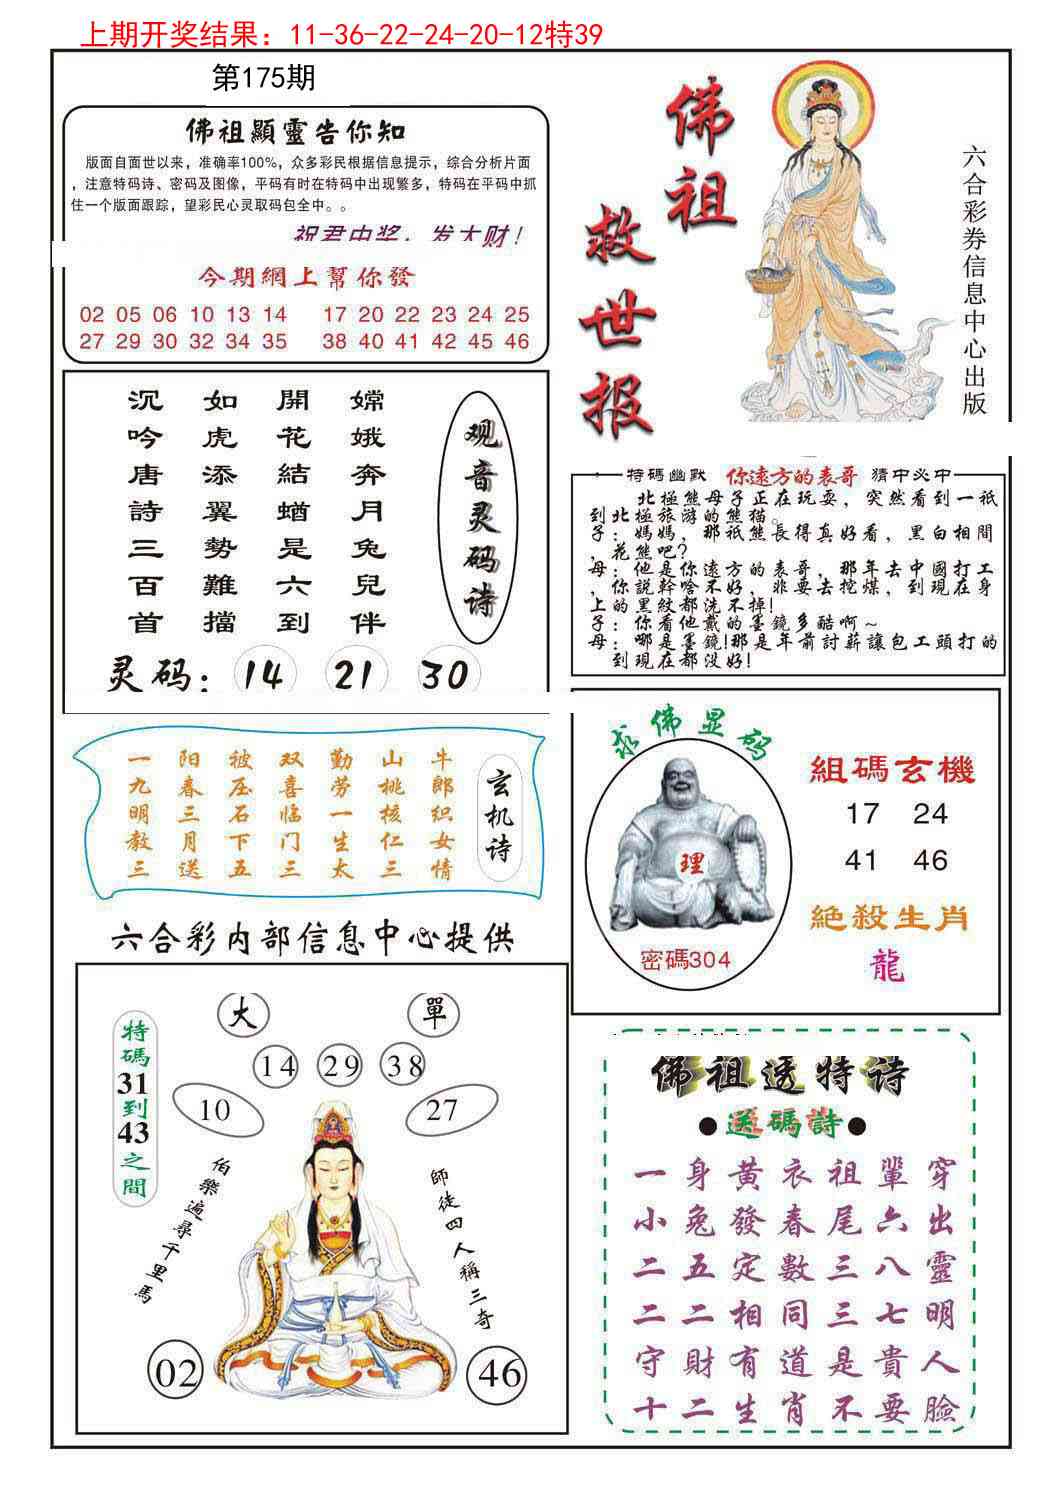 上期开奖结果：11-36-22-24-20-12特39
第175期
佛祖顯靈告你知
版面自面世以来，准确率100%，众多彩民根据信息提示，综合分析片面
，注意特码诗、密码及图像，平码有时在特码中出现繁多，特码在平码中抓
住一个版面跟踪，望彩民心灵取码包全中。。
祝君中奖，发大财！
今期網上幫你發
02 05 06 10 13 14 17 20 22 23 24 25
27 29 30 32 34 35 38 40 41 42 45 46
佛祖
救世报
六合彩券信息中心出版
观音灵码诗
嫦娥奔月兔兒伴
開花結蝤是六到
如虎添翼勢難擋
沉吟唐詩三百首
灵码：14 21 30
特碼幽默 你遠方的表哥 猜中必中
北極熊母子正在玩耍，突然看到一祇
到北極旅游的熊猫。
子：媽媽，那祇熊長得真好看，黑白相間
，花熊吧？
母：他是你遠方的表哥，那年去中國打工
，你説幹啥不好，非要去挖煤，到現在身
上的黑紋都洗不掉！
子：你看他戴的墨鏡多酷啊～
母：哪是墨鏡！那是年前討薪讓包工頭打的
到現在都没好！
玄机诗
牛郎织女情
山桃核仁三
勤劳一生太
双喜临门三
被压石下五
阳春三月送
一九明教三
求佛显码
理
密碼304
組碼玄機
17 24
41 46
絕殺生肖
龍
六合彩内部信息中心提供
大 單
14 29 38
10 27
特碼31到43之間
伯樂遍尋千里馬
師徒四人稱三奇
02 46
佛祖透特诗
●送碼詩●
一身黃衣祖輩穿
小兔發春尾六出
二五定數三八靈
二二相同三七明
守財有道是貴人
十二生肖不要臉